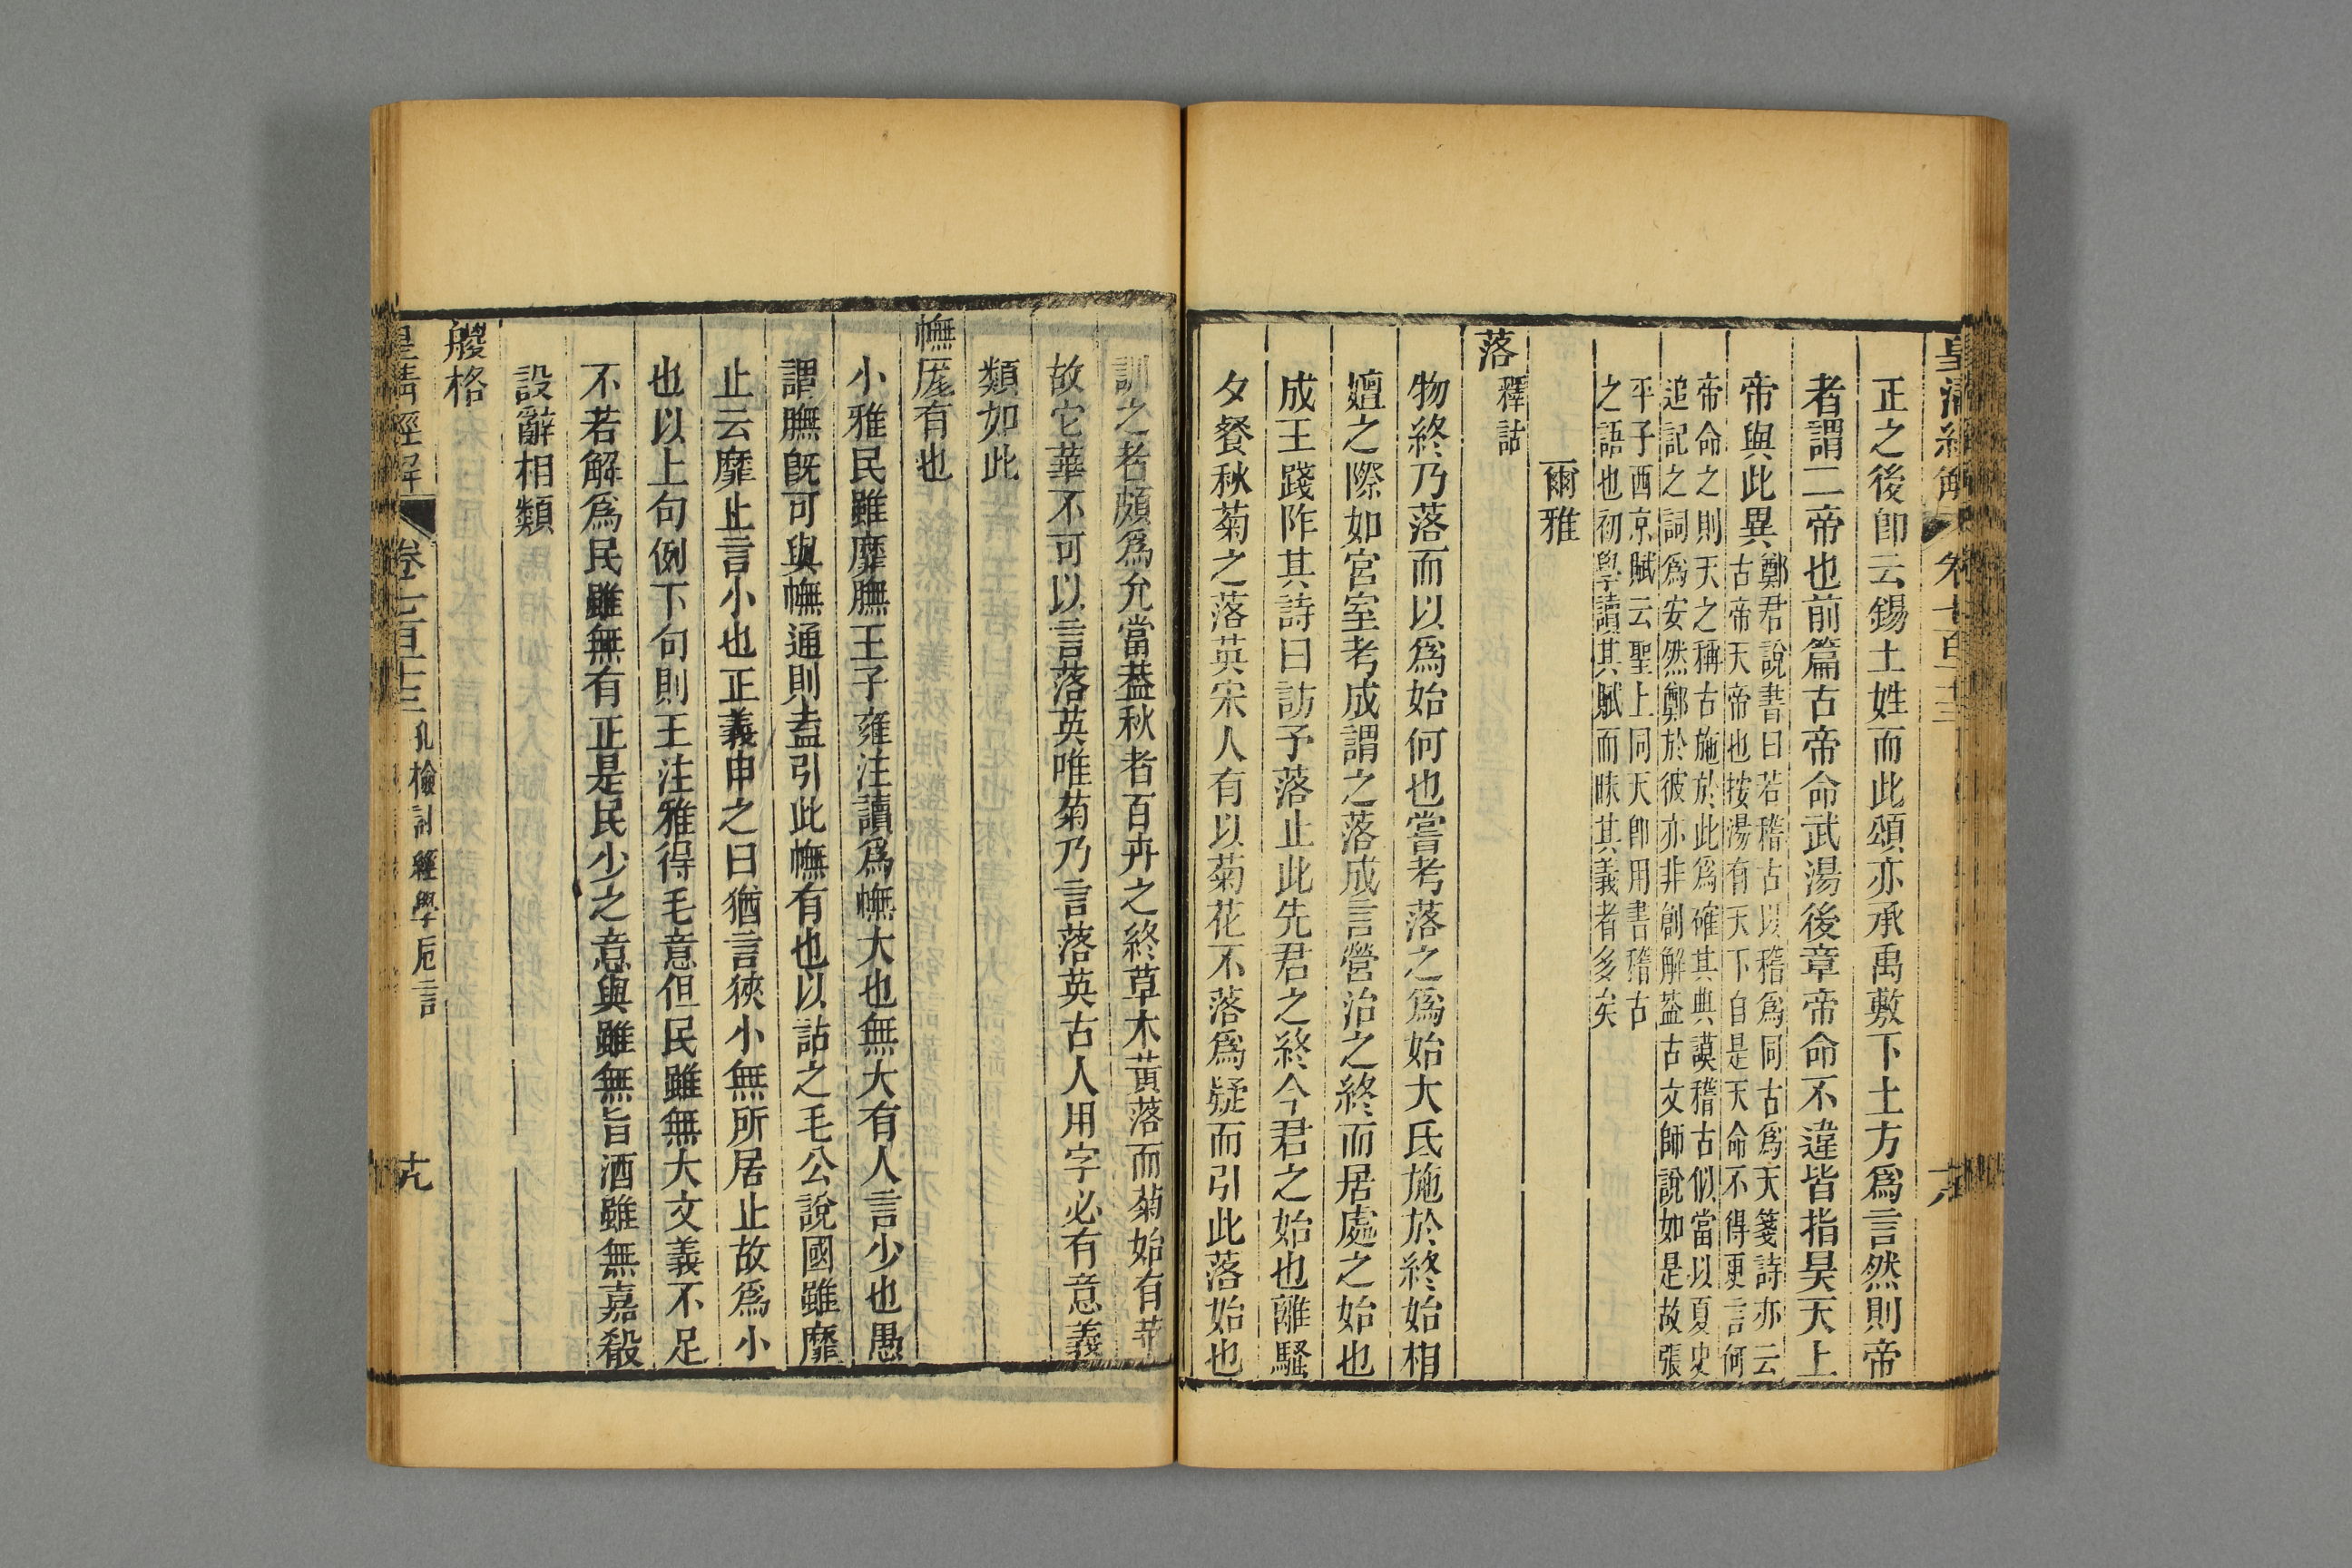 皇清經解 卷七百十三 十八
正之後卽云錫土姓而此頌亦承禹敷下土方爲言然則帝
者謂二帝也前篇古帝命武湯後章帝命不違皆指昊天上
帝與此異鄭君說書曰若稽古以稽爲同古爲天箋詩亦云
古帝天帝也按湯有天下自是天命不得更言何
帝命之則天之稱古施於此爲確其典謨稽古似當以夏史
追記之詞爲安然鄭於彼亦非創解葢古文師說如是故張
平子西京賦云聖上同天卽用書稽古
之語也初學讀其賦而昧其義者多矣
爾雅
落釋詁
物終乃落而以爲始何也嘗考落之爲始大氐施於終始相
嬗之際如宮室考成謂之落成言營治之終而居處之始也
成王踐阼其詩曰訪予落止此先君之終今君之始也離騷
夕餐秋菊之落英宋人有以菊花不落爲疑而引此落始也
訓之者頗爲允當葢秋者百卉之終草木黃落而菊始有華
故它華不可以言落英唯菊乃言落英古人用字必有意義
類如此
幠厖有也
小雅民雖靡膴王子雍注讀爲幠大也無大有人言少也愚
謂膴旣可與幠通則盍引此幠有也以詁之毛公說國雖靡
止云靡止言小也正義申之曰猶言狹小無所居止故爲小
也以上句例下句則王注雅得毛意但民雖無大文義不足
不若解爲民雖無有正是民少之意與雖無旨酒雖無嘉殽
設辭相類
艐格
皇清經解 卷七百十三 孔檢討經學卮言 十九